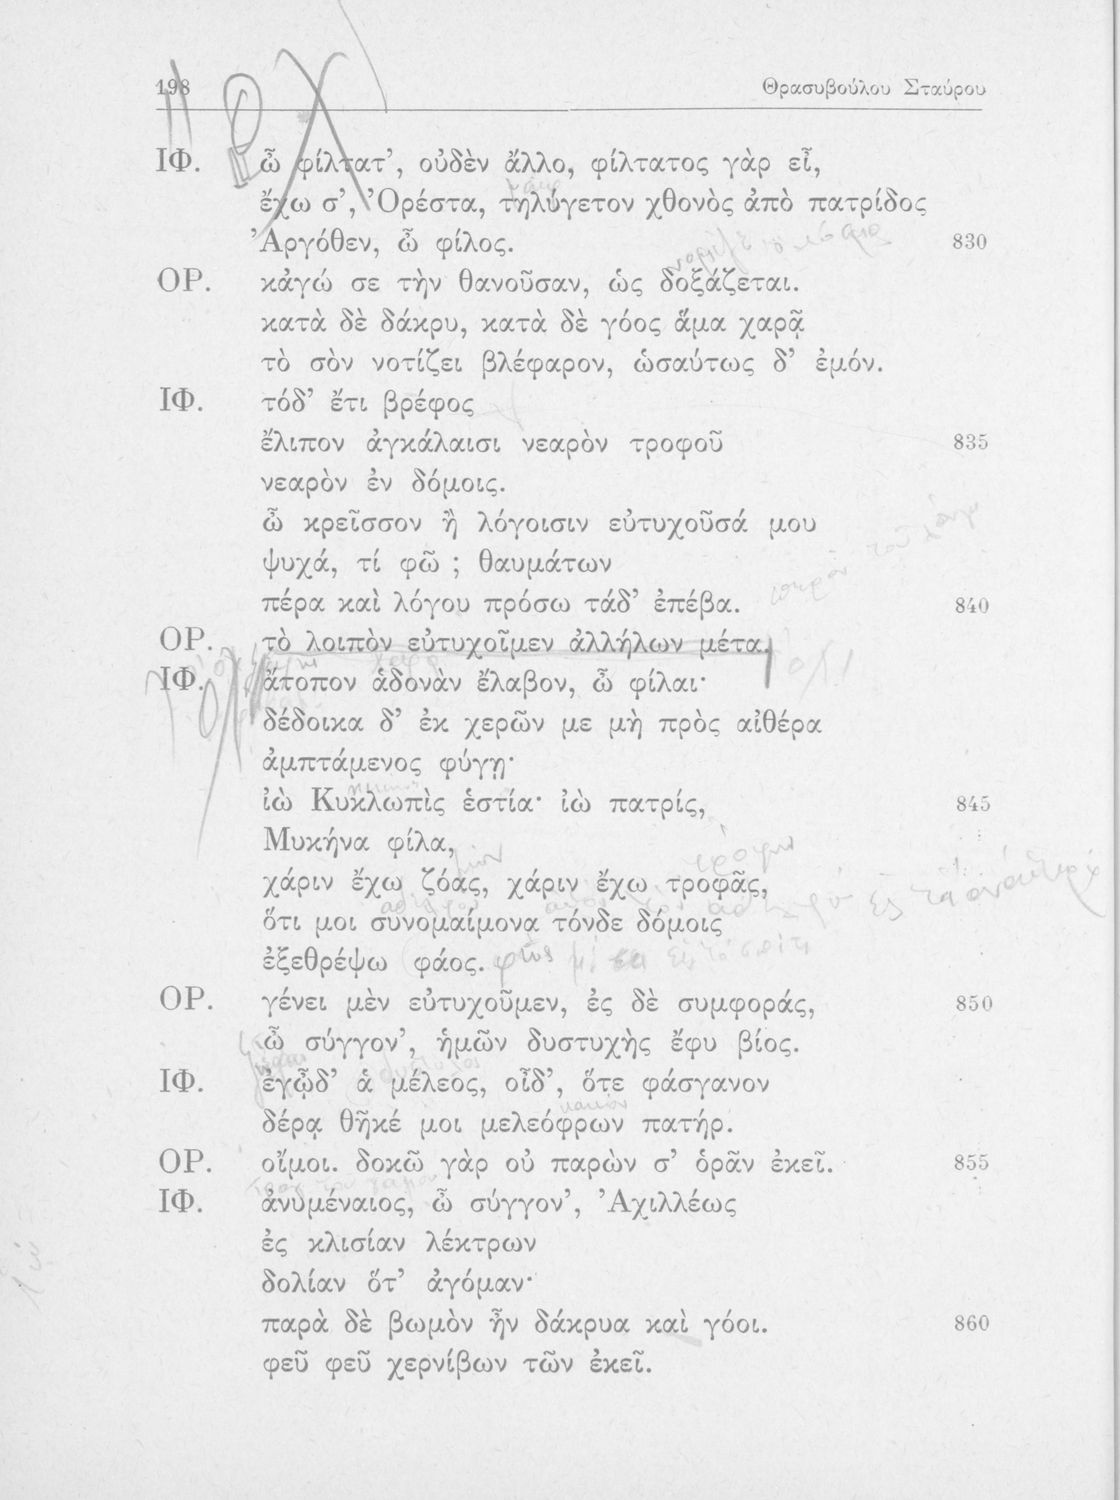 198 Θρασυβούλου Σταύρου
ΙΦ. ὦ φίλτατ’, οὐδὲν ἄλλο, φίλτατος γὰρ εἶ,
ἔχω σ’, Ὀρέστα, τηλύγετον χθονὸς ἀπὸ πατρίδος
Ἀργόθεν, ὦ φίλος. 830
ΟΡ. κἀγώ σε τὴν θανοῦσαν, ὡς δοξάζεται.
κατὰ δὲ δάκρυ, κατὰ δὲ γόος ἅμα χαρᾷ
τὸ σὸν νοτίζει βλέφαρον, ὡσαύτως δ’ ἐμόν.
ΙΦ. τόδ’ ἔτι βρέφος
ἔλιπον ἀγκάλαισι νεαρὸν τροφοῦ 835
νεαρὸν ἐν δόμοις.
ὦ κρεῖσσον ἢ λόγοισιν εὐτυχοῦσά μου
ψυχά, τί φῶ ; θαυμάτων
πέρα καὶ λόγου πρόσω τάδ’ ἐπέβα. 840
ΟΡ. τὸ λοιπὸν εὐτυχοῖμεν ἀλλήλων μέτα.
ΙΦ. ἄτοπον ἁδονὰν ἔλαβον, ὦ φίλαι·
δέδοικα δ’ ἐκ χερῶν με μὴ πρὸς αἰθέρα
ἀμπτάμενος φύγῃ·
ἰὼ Κυκλωπὶς ἑστία· ἰὼ πατρίς, 845
Μυκήνα φίλα,
χάριν ἔχω ζόας, χάριν ἔχω τροφᾶς,
ὅτι μοι συνομαίμονα τόνδε δόμοις
ἐξεθρέψω φάος.
ΟΡ. γένει μὲν εὐτυχοῦμεν, ἐς δὲ συμφοράς, 850
ὦ σύγγον’, ἡμῶν δυστυχὴς ἔφυ βίος.
ΙΦ. ἐγᾦδ’ ἁ μέλεος, οἶδ’, ὅτε φάσγανον
δέρᾳ θῆκέ μοι μελεόφρων πατήρ.
ΟΡ. οἴμοι. δοκῶ γὰρ οὐ παρὼν σ’ ὁρᾶν ἐκεῖ. 855
ΙΦ. ἀνυμέναιος, ὦ σύγγον’, Ἀχιλλέως
ἐς κλισίαν λέκτρων
δολίαν ὅτ’ ἀγόμαν·
παρὰ δὲ βωμὸν ἦν δάκρυα καὶ γόοι. 860
φεῦ φεῦ χερνίβων τῶν ἐκεῖ.